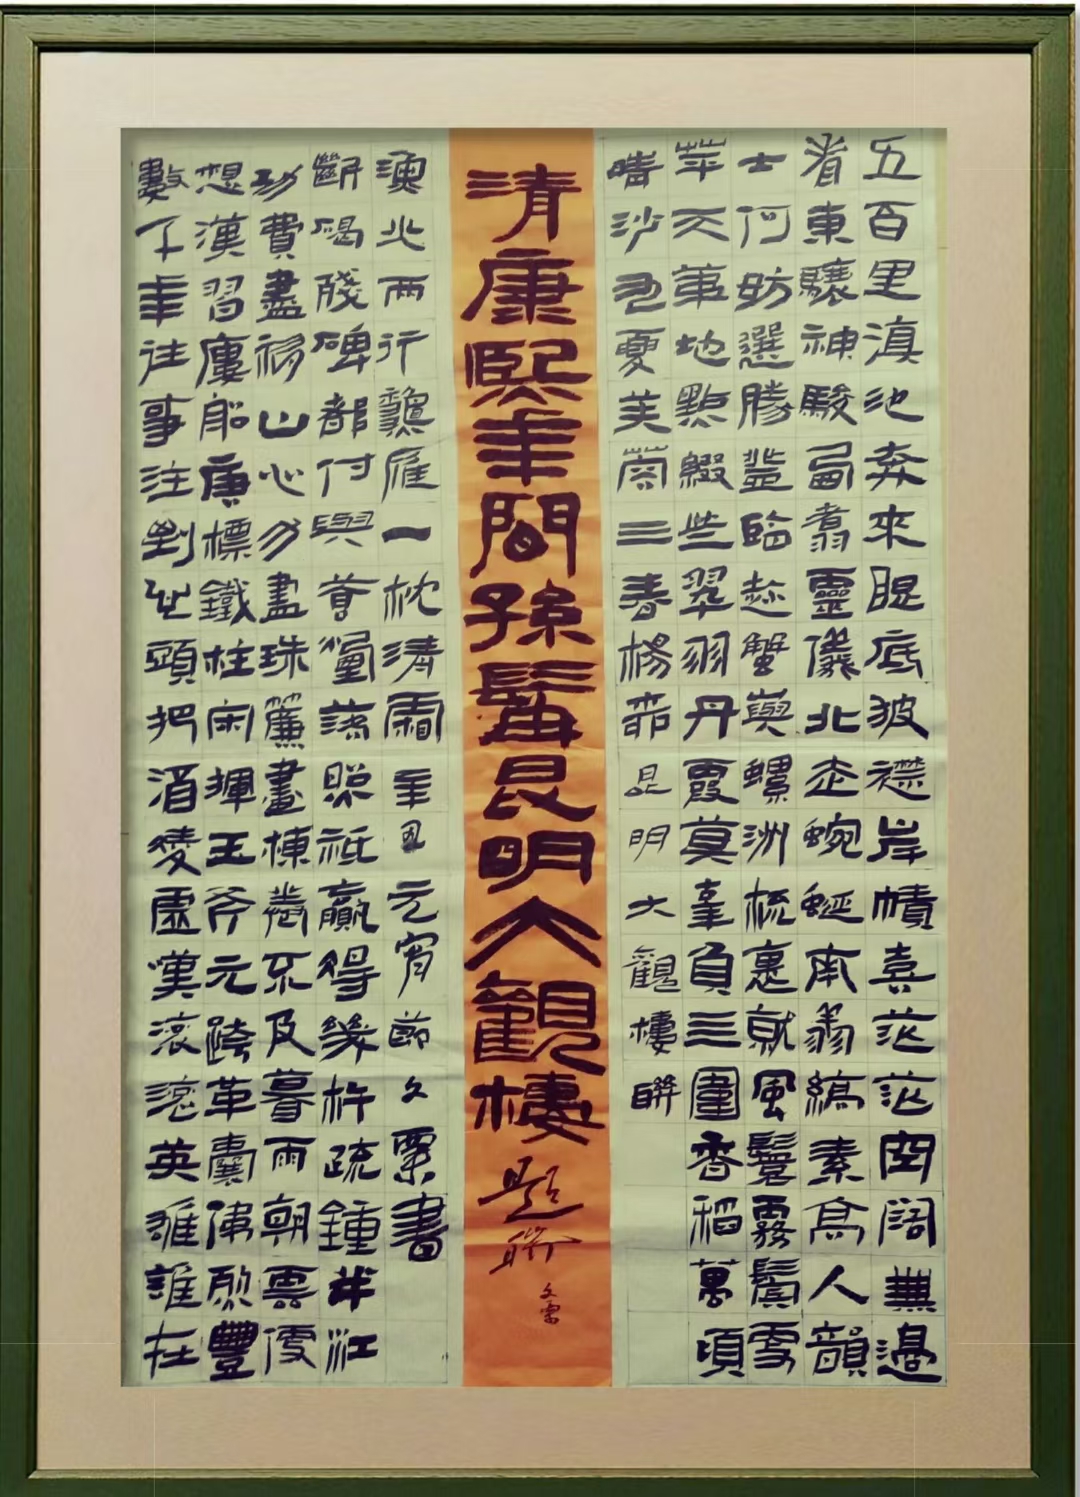 五百里滇池奔來眼底披襟岸幘喜茫茫空闊無邊
看東驤神駿西翥靈儀北走蜿蜒南翔縞素高人韻
士何妨選勝登臨趁蟹嶼螺洲梳裹就風鬟霧鬢更
苹天葦地點綴些翠羽丹霞莫辜負三圍香稻萬頃
晴沙九夏芙蓉三春楊柳昆明大觀樓聯
清康熙年間孫髯昆明大觀樓題聯
數千年往事注到心頭把酒凌虛嘆滾滾英雄誰在
想漢習樓船唐標鐵柱宋揮玉斧元跨革囊偉烈豐
功費盡移山心力盡珠簾畫棟卷不及暮雨朝雲便
斷碣殘碑都付與蒼煙落照祇贏得幾杵疏鐘半江
漁火兩行秋雁一枕清霜辛丑元宵節文粟書